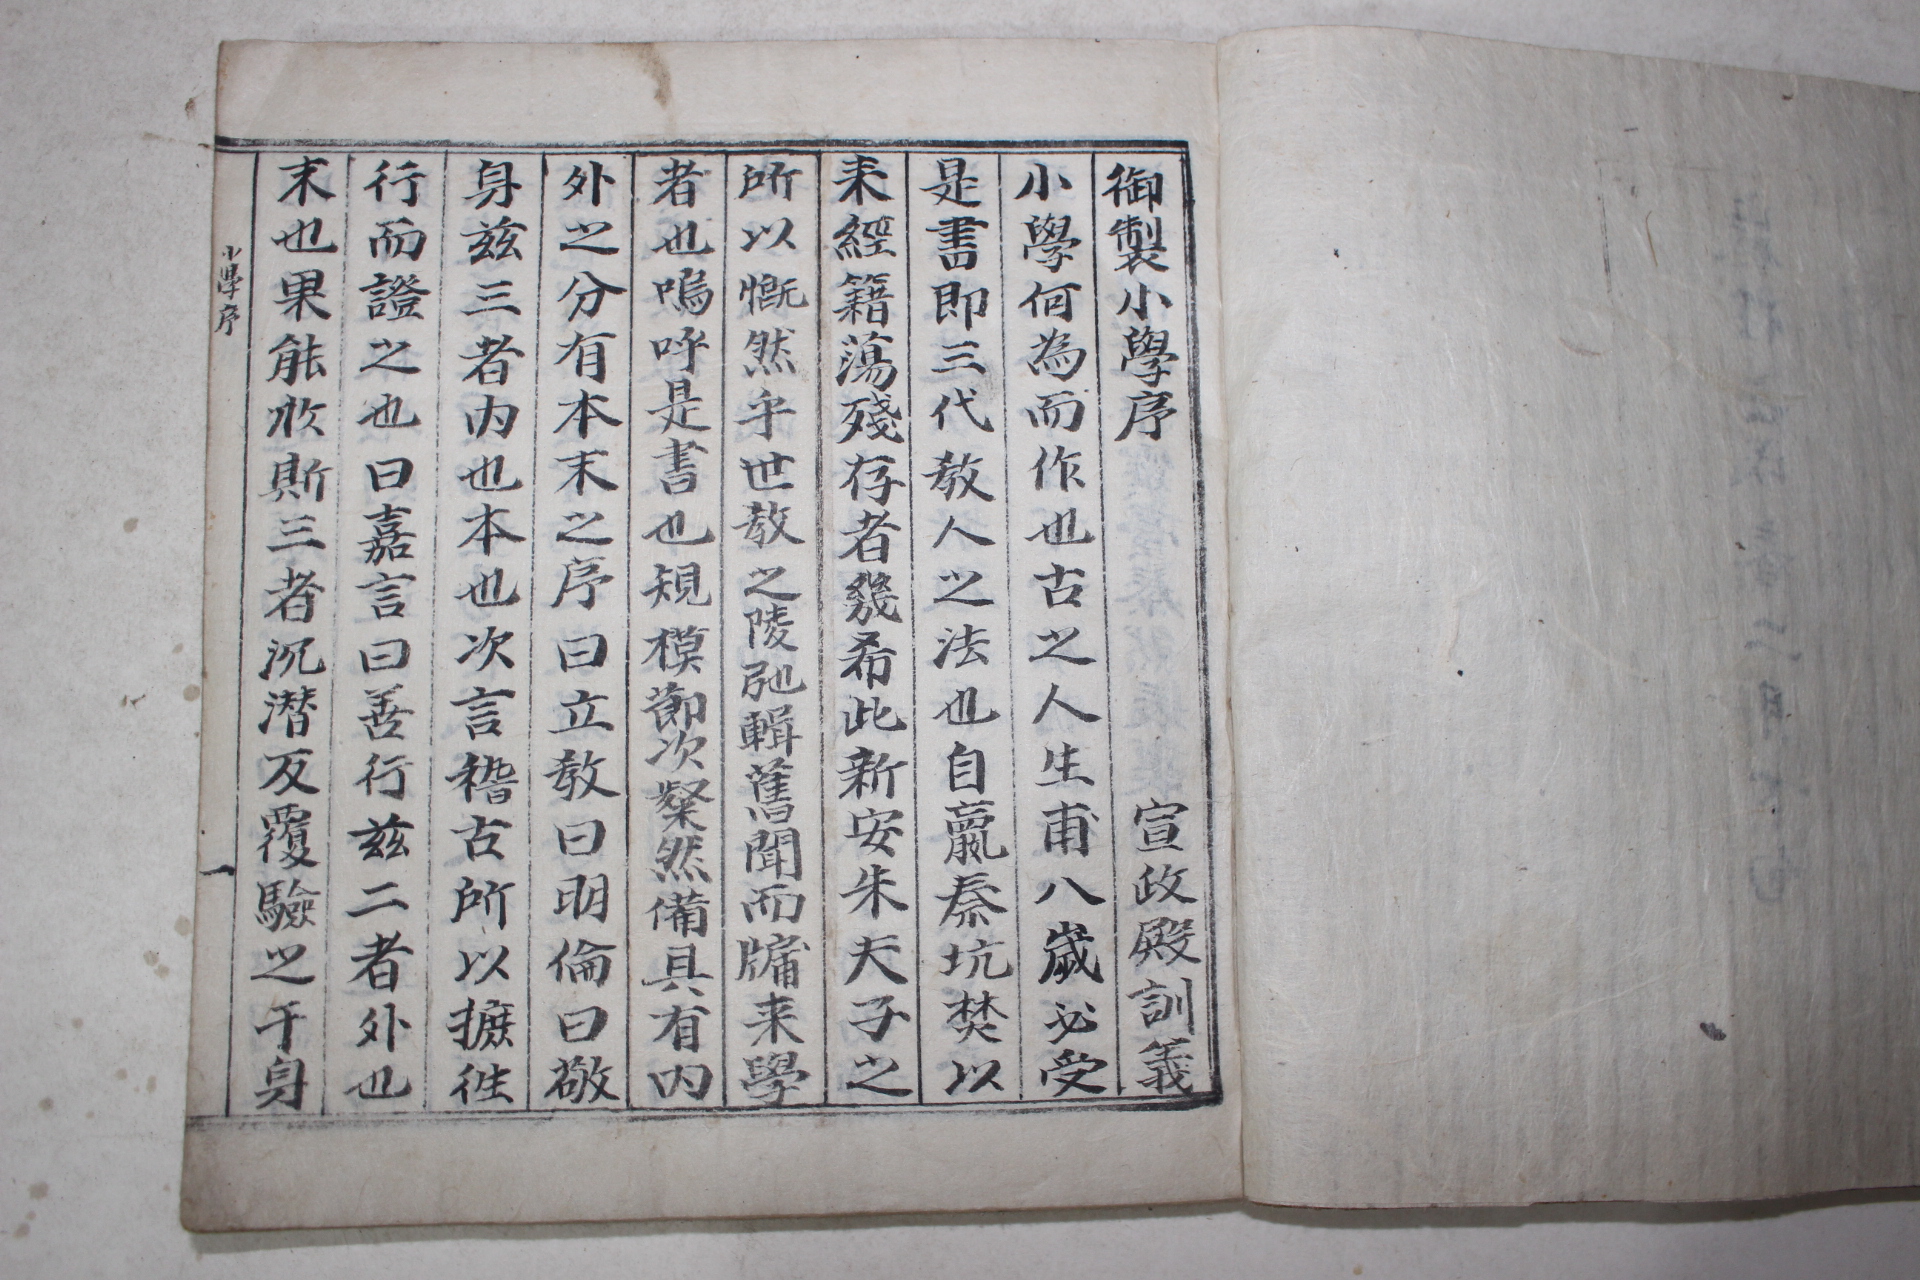 御製小學序 宣政殿訓義
小學何為而作也古之人生甫八歲必受
是書即三代教人之法也自嬴秦坑焚以
来經籍蕩殘存者幾希此新安朱夫子之
所以慨然乎世教之陵弛輯舊聞而牗来學
者也嗚呼是書也規模節次粲然備具有內
外之分有本末之序曰立教曰明倫曰敬
身茲三者內也本也次言稽古所以摭徃
行而證之也曰嘉言曰善行茲二者外也
末也果能於斯三者沉潜反覆驗之于身
小學序
一